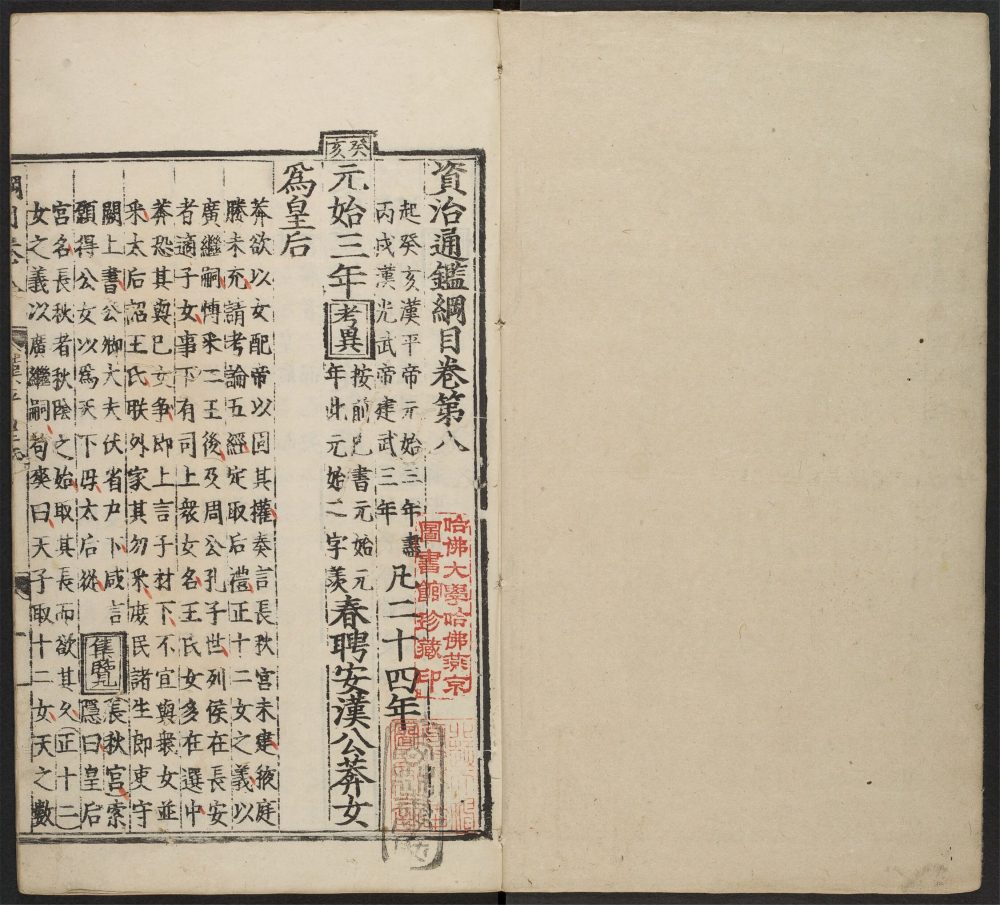 資治通鑑綱目卷第八
起癸亥漢平帝元始三年盡
丙戌漢光武帝建武三年
凡二十四年
癸亥
元始三年
考異
按前已書元始元
年此元始二字羨
春聘安漢公莽女
爲皇后
莽欲以女配帝以固其權奏言長秋宮未建掖庭
媵未充請考論五經定取后禮正十二女之義以
廣繼嗣博采二王後及周公孔子世列侯在長安
者適子女事下有司上衆女名王氏女多在選中
莽恐其與己女爭即上言子材下不宜與衆女並
采太后詔王氏朕外家其勿采庶民諸生郎吏守
闕上書公卿大夫伏省户下咸言
願得公女以爲天下母太后從
集覽
長秋宮索
隱曰皇后
宮名長秋者秋陰之始取其長而欲其久正十二
女之義以廣繼嗣荀爽曰天子取十二女天之數
哈佛大學哈佛燕京
圖書館珍藏印